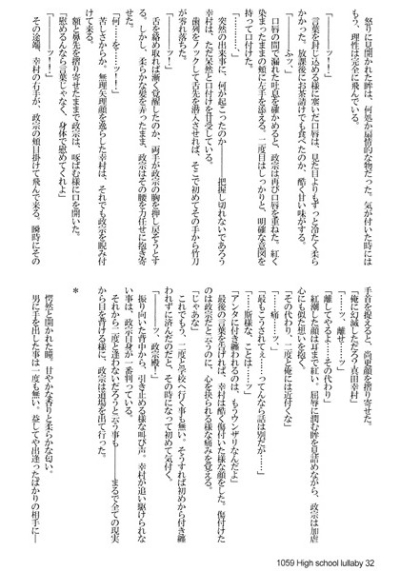 怒りに見開かれた眸は、何処か扇情的な物だった。気が付いた時には
もう、理性は完全に飛んでいる。
「―――ッ！―――」
言葉を封じ込める様に塞いだ口唇は、見た目よりもずっと冷たく柔ら
かかった。放課後にお茶請けでも食べたのか、酷く甘い味がする。
「―――ふッ」
口唇の間で漏れた吐息を確かめると、政宗は再び口唇を重ねた。紅く
染まったままの頬に左手を添える。二度目はしっかりと、明確な意図を
持って口付けた。
突然の出来事に、何が起こったのか―――把握し切れないであろう
幸村は、ただ呆然と口付けを甘受している。
歯列をノックして舌先を潜入させれば、そこで初めてその手から竹刀
が零れ落ちた。
「―――ッ！」
舌を絡め取れば漸く覚醒したのか、両手が政宗の胸を押し戻そうとす
る。しかし、柔らかな髪を弄ったまま、政宗はその腰を力任せに抱き寄
せた。
「何……を……ッ！」
苦しさからか、無理矢理顔を逸らした幸村は、それでも政宗を睨み付
けて来る。
額と鼻先を擦り寄せたままで政宗は、咬ばむ様に口を開いた。
「慰めるんなら言葉じゃなく、身体で慰めてくれよ」
「―――ッ！」
その途端、幸村の右手が、政宗の頬目掛けて飛んで来る。瞬時にその
手首を捉えると、尚更顔を擦り寄せた。
「俺に幻滅しただろう真田幸村」
「……ッ、離せ……ッ」
「離してやるよ――その代わり」
紅潮した顔は耳まで紅い。屈辱に潤む眸を見詰めながら、政宗は加虐
心にも似た想いを抱く。
「その代わり、二度と俺には近付くな」
「……痛……ッ」
「最もこうされてぇ……ってんなら話は別だが……」
「……斯様な、ことは……ッ」
「アンタに付き纏われるのは、もうウンザリなんだよ」
最後の言葉を告げれば、幸村は酷く傷付いた様な顔をした。傷付けた
のは政宗だと云うのに、心を抉られる様な痛みを覚える。
「じゃあな」
これでもう、二度と学校へ行く事も無い。そうすれば初めから付き纏
われずに済んだのだと、その時になって初めて気付く。
「……ッ、政宗殿…！」
振り向いた背中から、引き止める様な叫び声。幸村が追い駆けられな
い事は、政宗自身が一番判っている。
それから二度と逢わないだろうと云う事も―――まるで全ての現実
から目を背ける様に、政宗は道場を出て行った。
*
愕然と開かれた瞳。甘やかな香りと柔らかな匂い。
男に手を出した事は一度も無い。益してや出逢ったばかりの相手に―
1059 High school lullaby 32